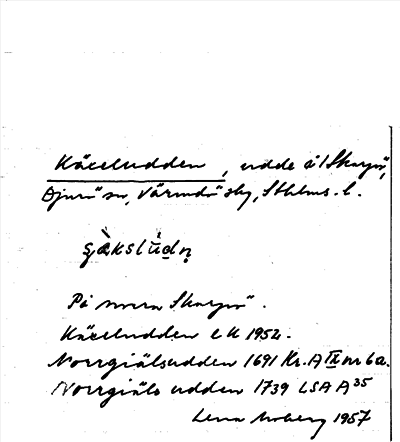 Käceludden, udde å I Skarpö,
Djurö sn, Värmdö skg, Sthlms. l.
På norra Skarpö.
Käceludden ek 1952.
Norrgiälsudden 1691 Kr. A IX nr 6a.
Norrgiäls udden 1739 LSA A 35
Lena Moberg 1957